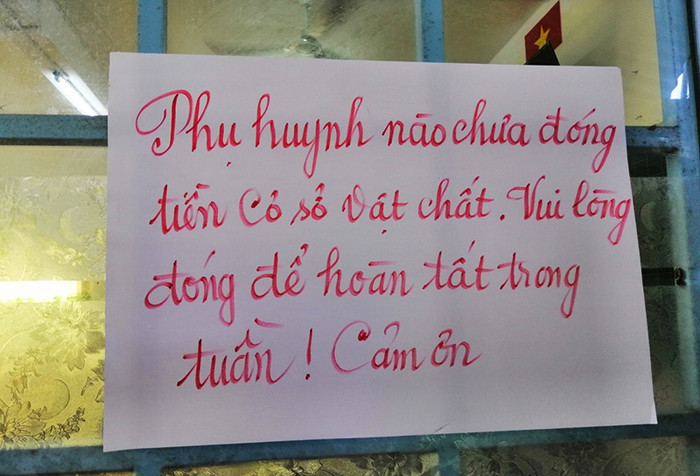 Phụ huynh nào chưa đóng
tiền Cơ sở Vật chất. Vui lòng
đóng để hoàn tất trong
tuần! Cảm ơn